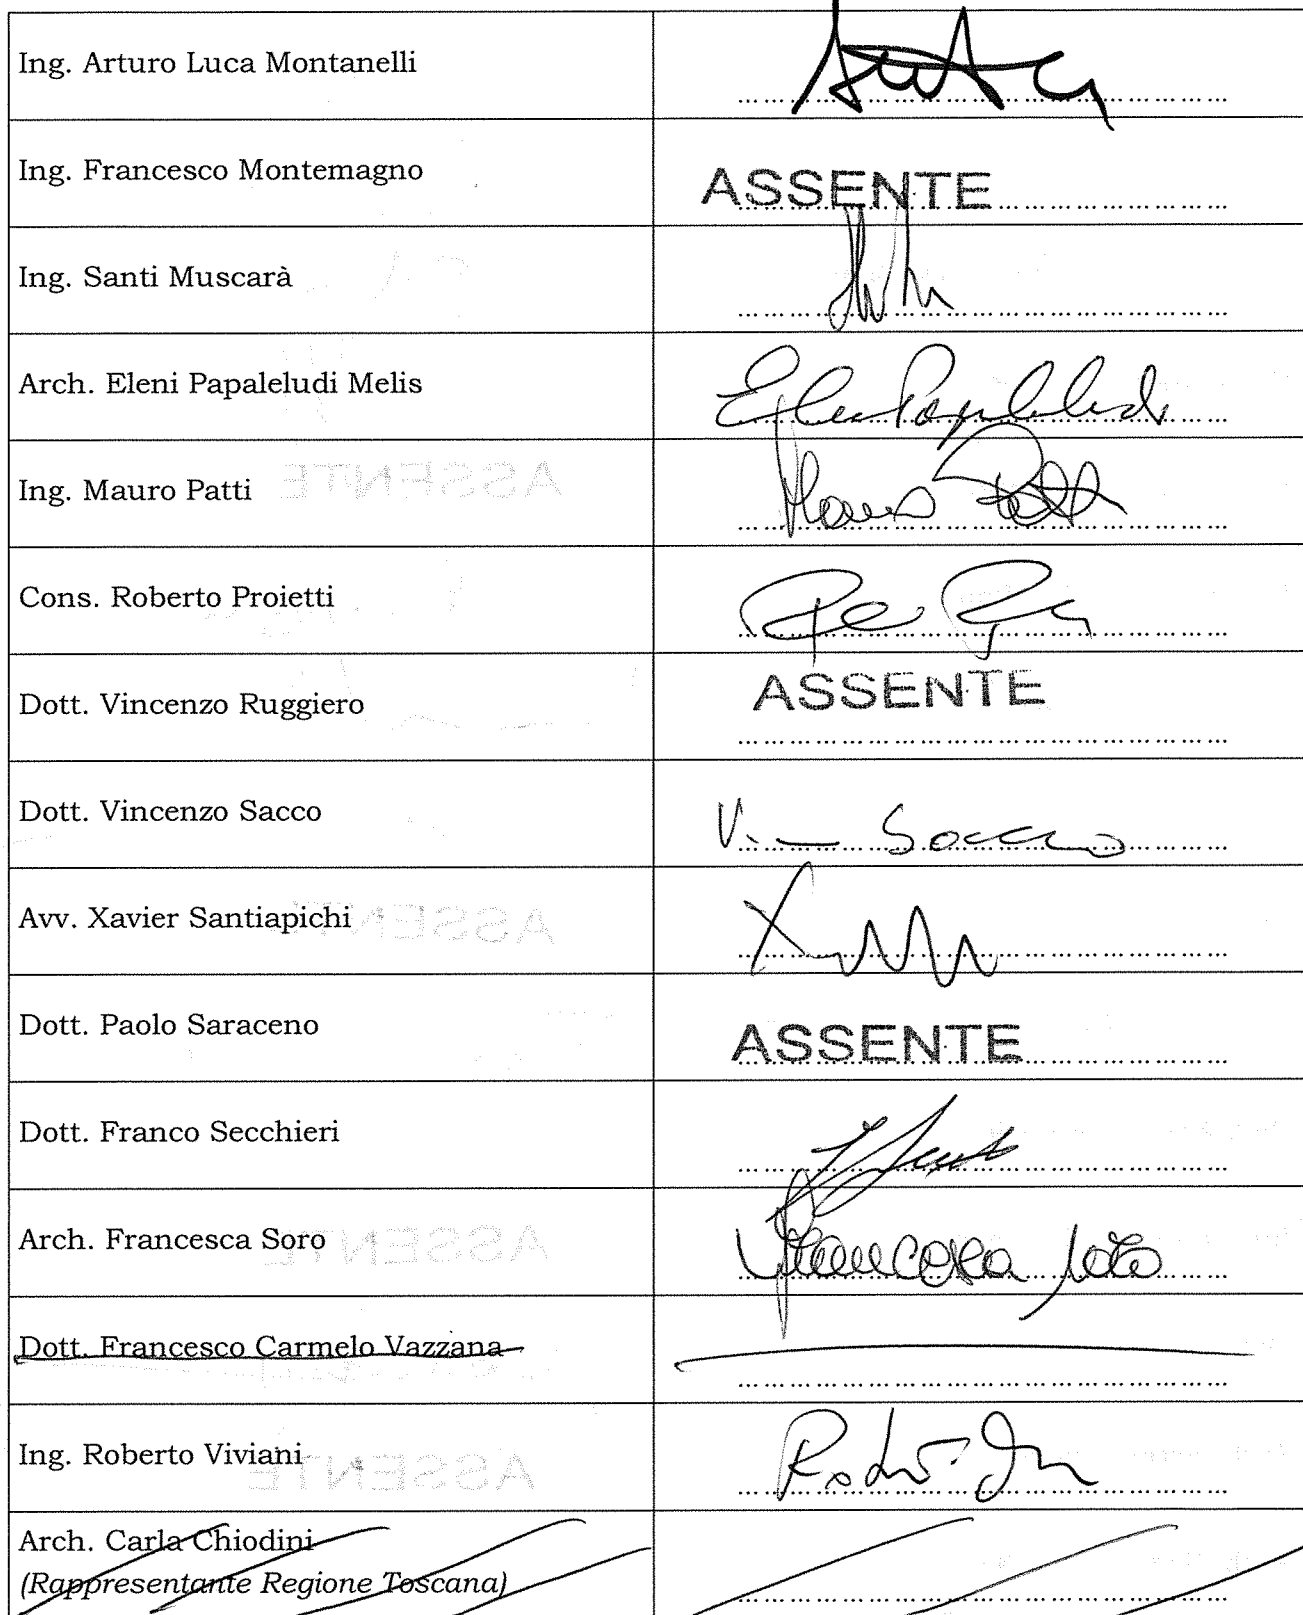 Ing. Arturo Luca Montanelli
Ing. Francesco Montemagno ASSENTE
Ing. Santi Muscarà
Arch. Eleni Papaleludi Melis
Ing. Mauro Patti
Cons. Roberto Proietti
Dott. Vincenzo Ruggiero ASSENTE
Dott. Vincenzo Sacco
Avv. Xavier Santiapichi
Dott. Paolo Saraceno ASSENTE
Dott. Franco Secchieri
Arch. Francesca Soro Francesca Soro
Dott. Francesco Carmelo Vazzana
Ing. Roberto Viviani
Arch. Carla Chiodini
(Rappresentante Regione Toscana)